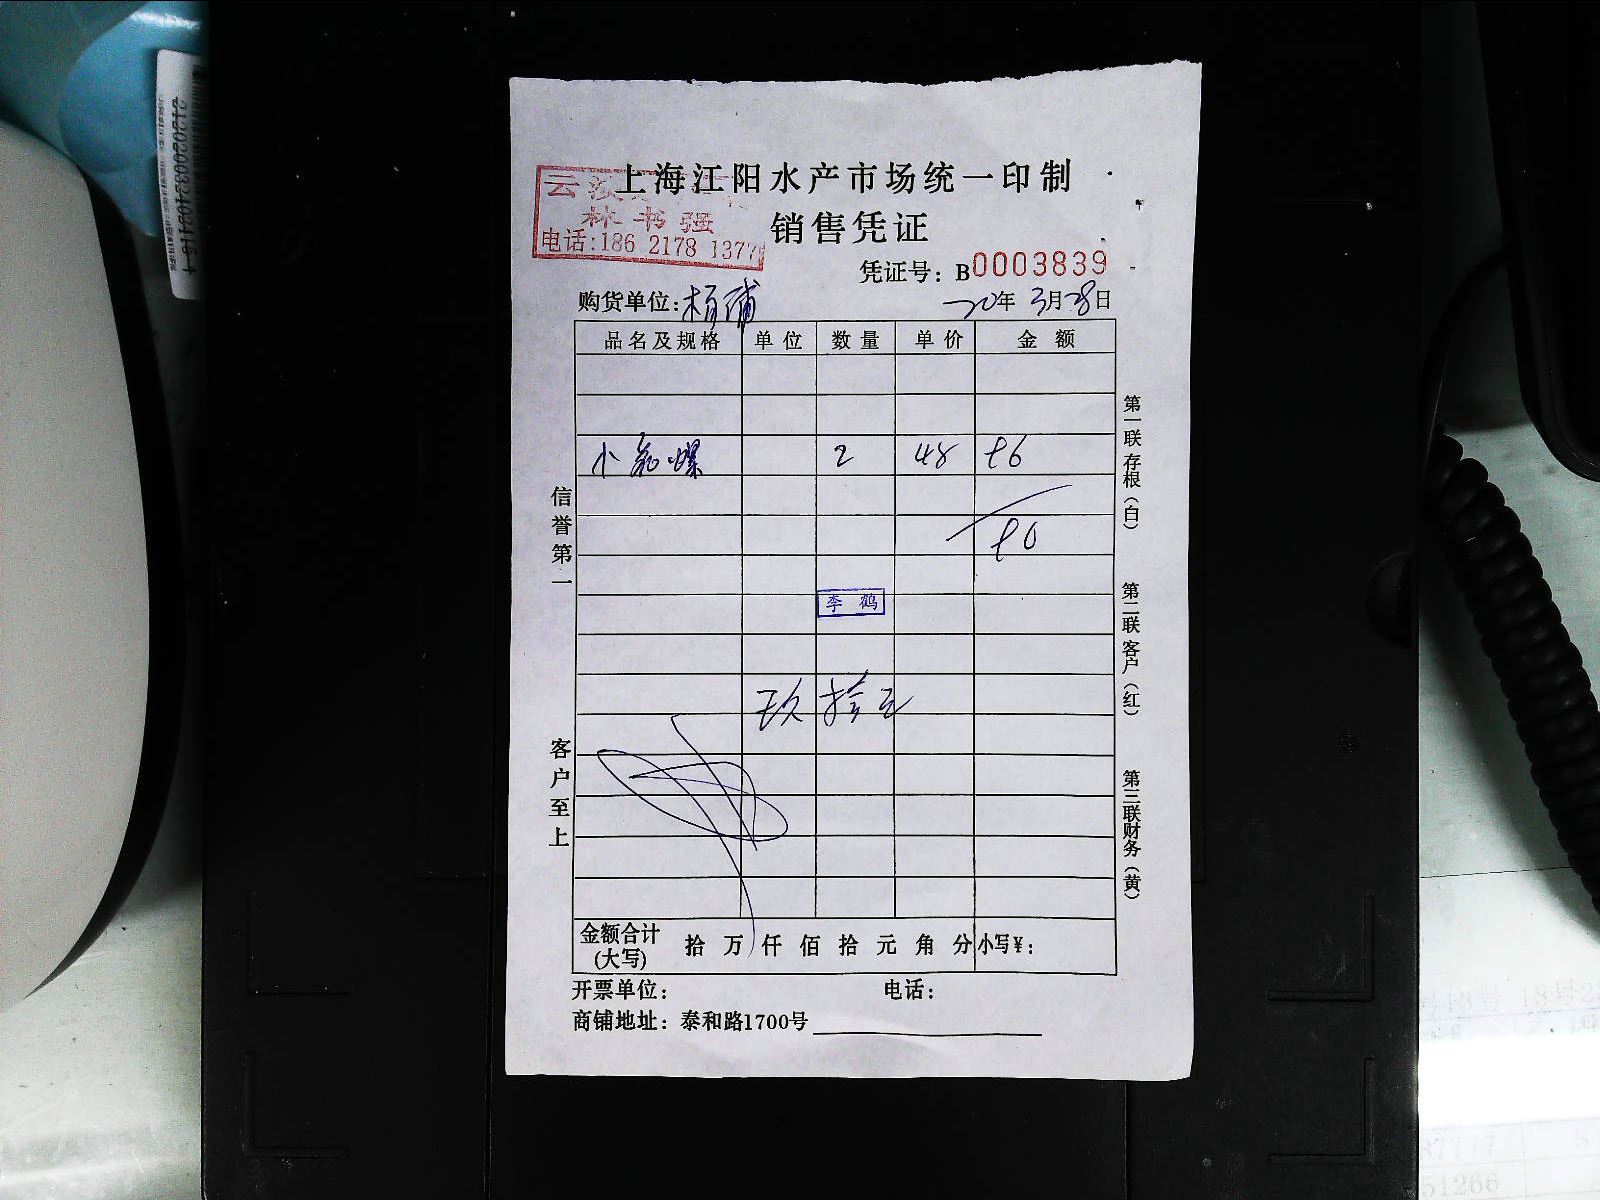 上海江阳水产市场统一印制
销售凭证
林书强
电话:186 2178 1377
凭证号: B0003839
购货单位:杨浦
20年 3月28日
品名及规格 单位 数量 单价 金额
小鲍螺 2 48 96
90
李鹤
玖拾元
金额合计(大写) 拾 万 仟 佰 拾 元 角 分 小写¥:
开票单位: 电话:
商铺地址: 泰和路1700号
信誉第一
客户至上
第一联存根(白)
第二联客户(红)
第三联财务(黄)
51266